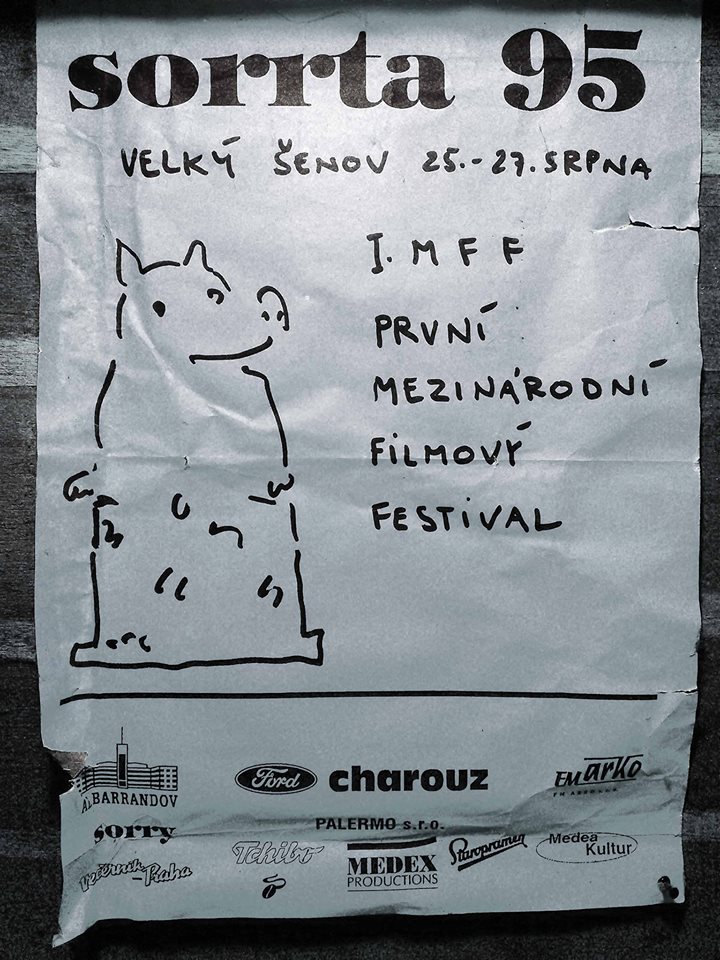 sorrta 95
VELKÝ ŠENOV 25.-27. SRPNA
I. M F F
PRVNÍ
MEZINÁRODNÍ
FILMOVÝ
FESTIVAL
BARRANDOV
Ford charouz
EM arko
sorry
PALERMO s.r.o.
Večerník-Praha
Tchibo
MEDEX
PRODUCTIONS
Staropramen
Medea
Kultur